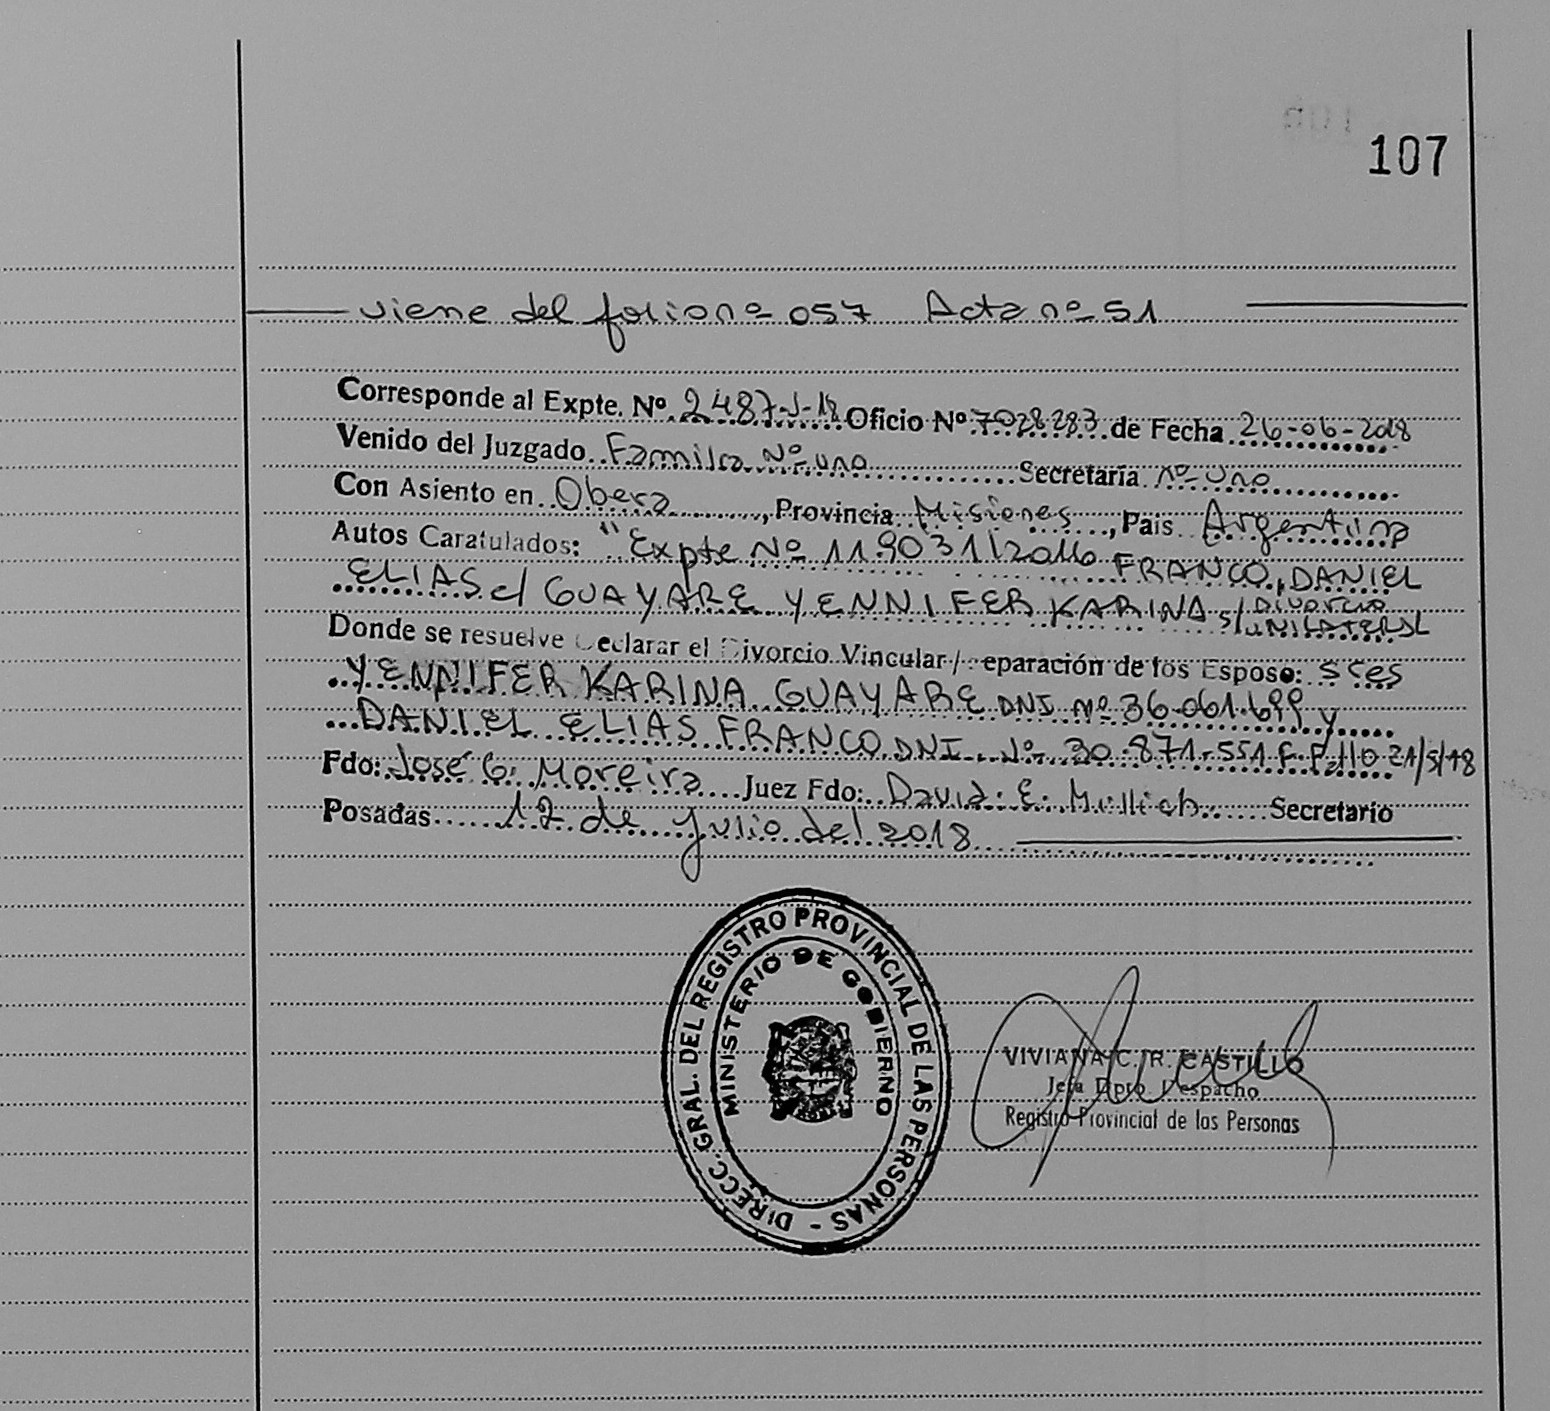 107
viene del folio nº 057 Acta nº 51
Corresponde al Expte. Nº 2487-J-18 Oficio Nº 7028283 de Fecha 26-06-2018
Venido del Juzgado Familia Nº uno Secretaría nº Uno
Con Asiento en Obera, Provincia Misiones, País Argentina
Autos Caratulados: "Expte Nº 119031/2016 FRANCO, DANIEL
ELIAS c/ GUAYARE YENNIFER KARINA s/ DIVORCIO UNILATERAL
Donde se resuelve Declarar el Divorcio Vincular/Separación de los Esposo: sres
YENNIFER KARINA GUAYARE DNI Nº 36.061.699 y
DANIEL ELIAS FRANCO DNI Nº 30.871.551 F. Fallo 21/5/18
Fdo: José G. Moreira Juez Fdo: David E. Mullich Secretario
Posadas 12 de Julio del 2018
DIRECC. GRAL. DEL REGISTRO PROVINCIAL DE LAS PERSONAS -
MINISTERIO DE GOBIERNO
VIVIANA C. R. CASTILLO
Jefa Dpto. Despacho
Registro Provincial de las Personas